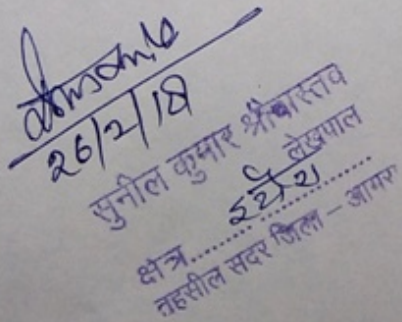 26/2/18
सुनील कुमार श्रीवास्तव
लेखपाल
क्षेत्र..................
तहसील सदर जिला - आगरा